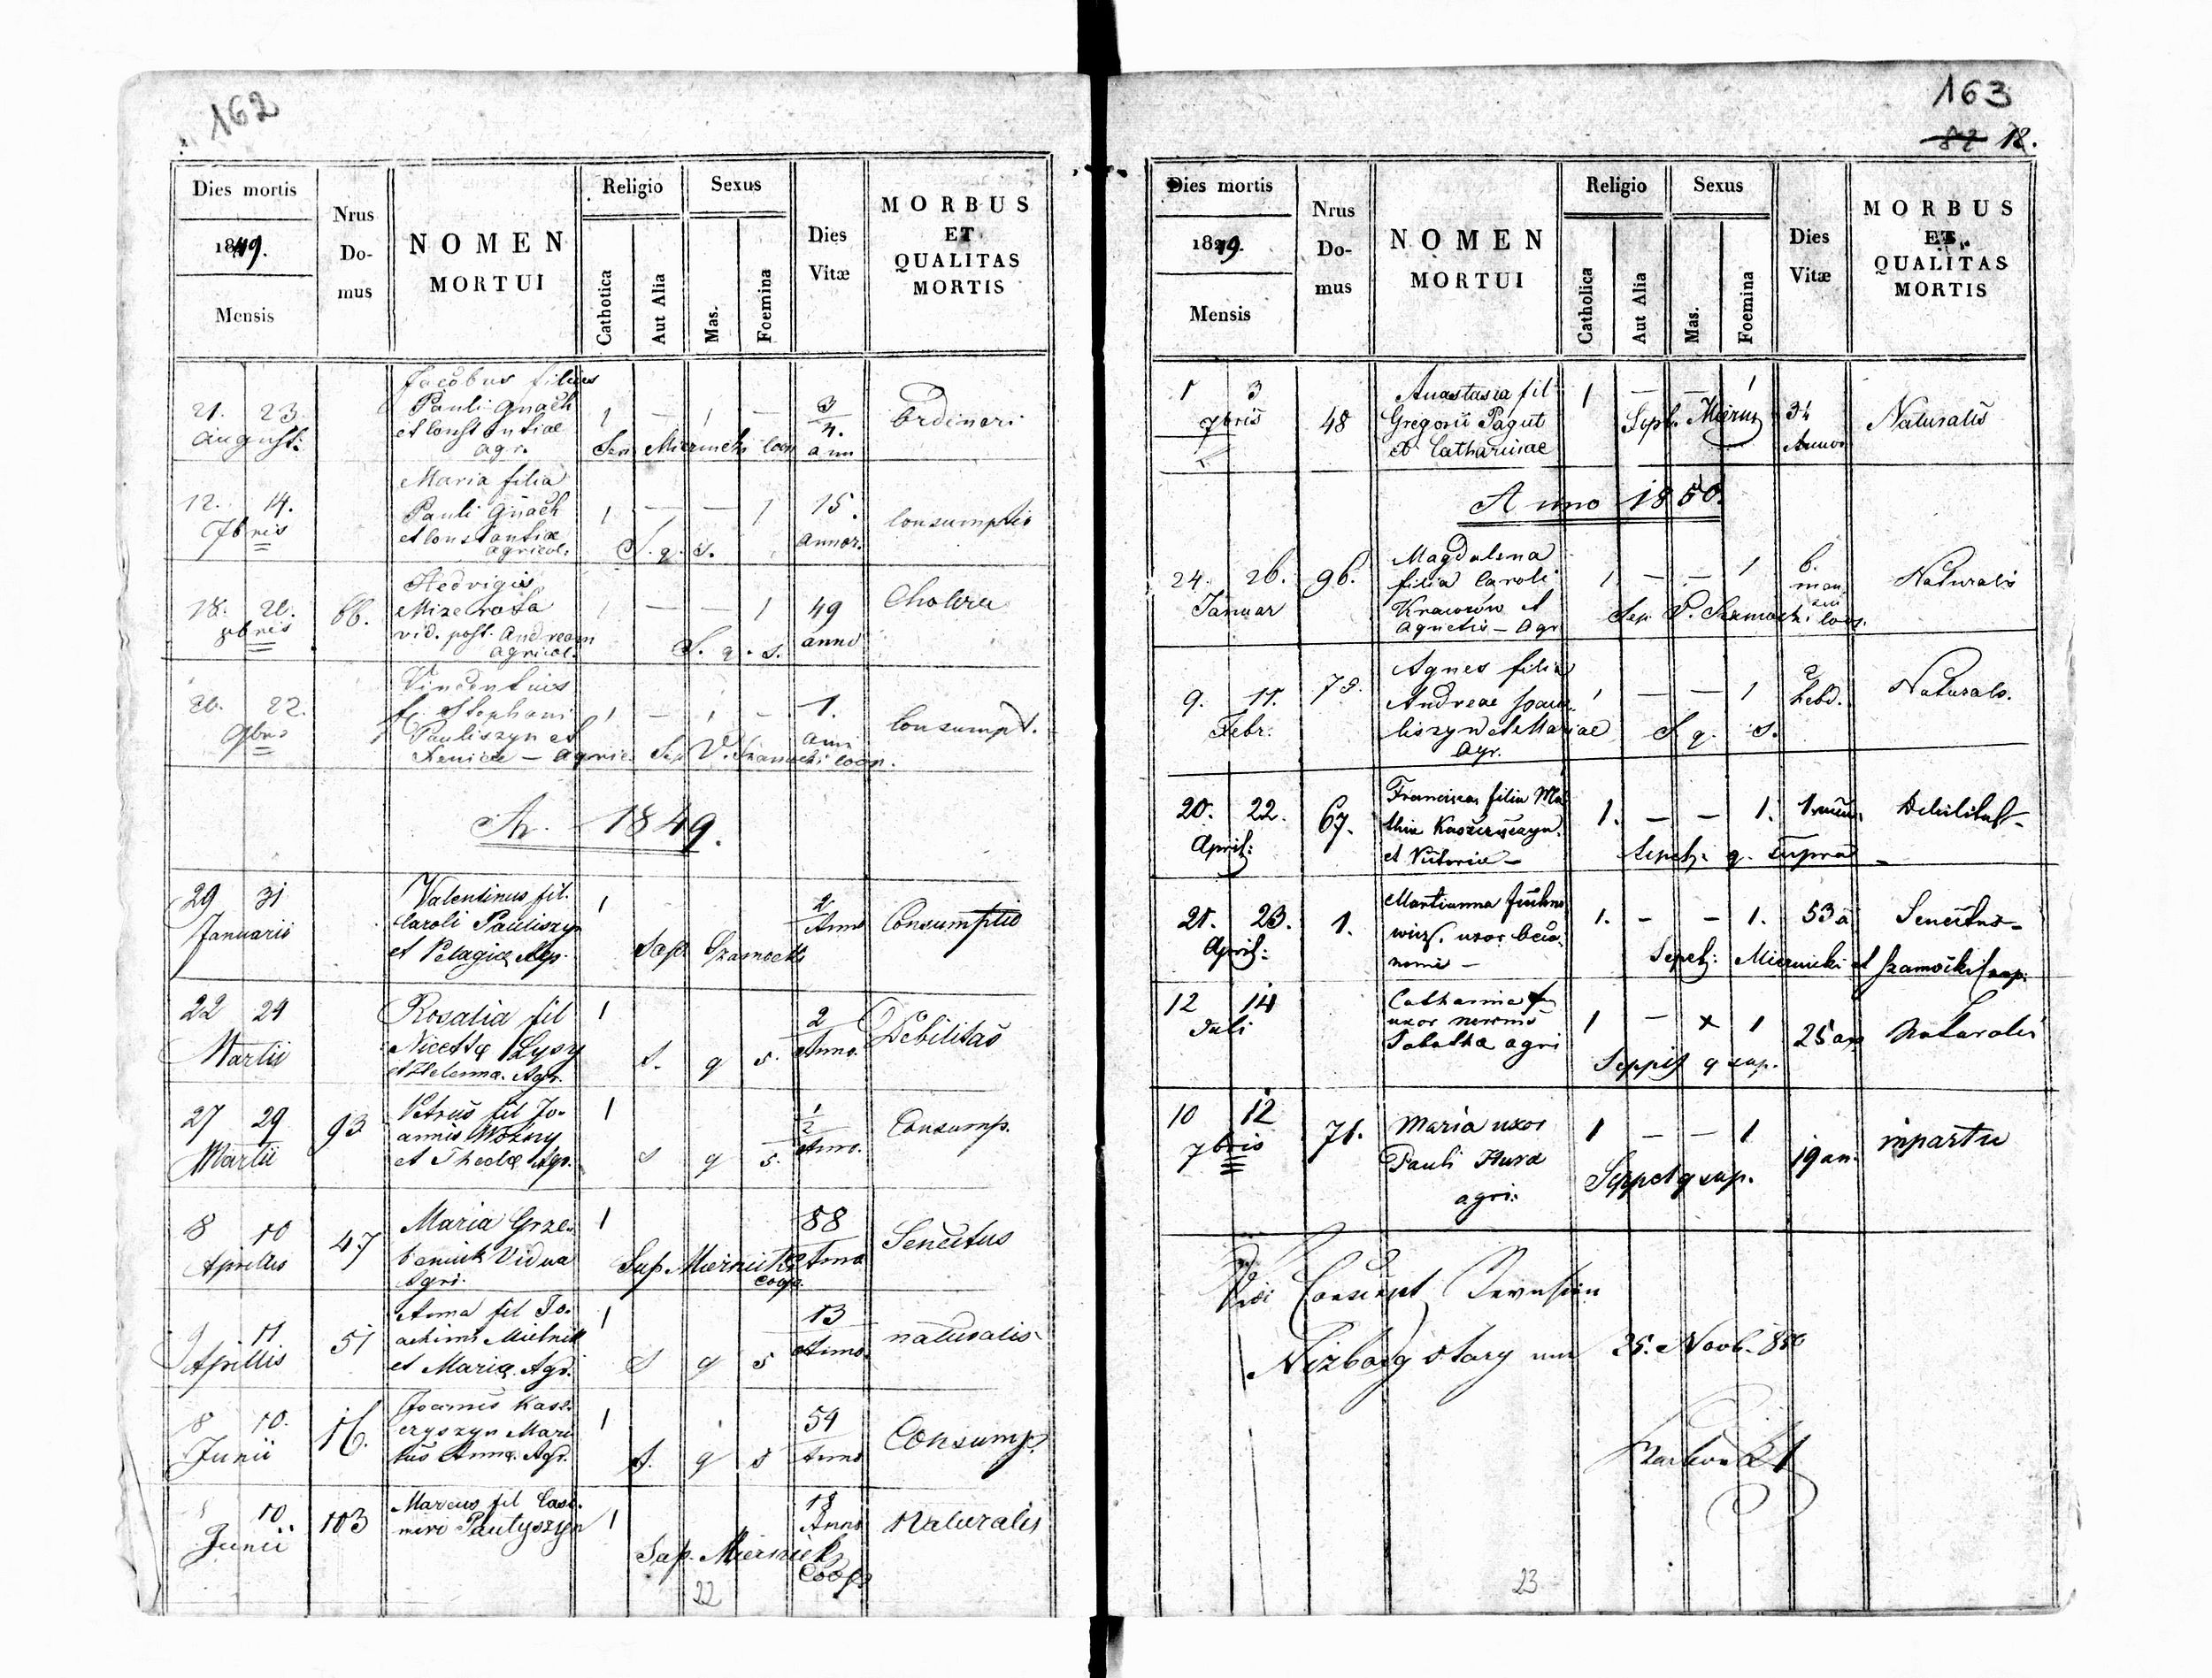 162
Dies mortis
1849.
Mensis
Nrus
Do-
mus
NOMEN
MORTUI
Religio
Catholica
Aut Alia
Sexus
Mas.
Foemina
Dies
Vitæ
MORBUS
ET
QUALITAS
MORTIS
21. 23.
August:
Jacobus filius
Pauli Gnach
et Constantiae
agr.
1 — 1 —
Sep. Miernicki Coop
3/4.
ann
Ordineri
12. 14.
7bris
Maria filia
Pauli Gnach
et Constantiae
agricol.
1 — — 1
S. q. s.
15.
annor.
Consumptio
18. 20.
66.
Hedvigis
vid. post. Andream
agricol.
1 — — 1
S. q. s.
49
anno
Cholera
20. 22.
Vincentius
f. Stephani
Pauliszyn et
Xeniae — agric.
1 — 1 —
Sep V. Szamocki coop.
1.
Consumpt.
A. 1849.
29 31
Januarii
Valentinus fil.
Caroli Pauliszyn
et Pelagiæ Agr.
1
Sep. Szamocki
2
Anno
Consumptio
22 24
Martii
Rosalia fil
Nicettæ Łysy
et Helenna. Agr.
1
S. q s.
2
Anno.
Debilitas
27 29
Martii
93
Petrus fil Jo-
annis Woźny
et Theclæ Agr.
1
S q s.
1/2
Anno.
Consump.
8 10
Aprilis
47
Maria Grze-
Vidua
Agri.
1
Sep. Miernicki
Coop.
88
Anno
Senectus
9 11
Aprillis
51
Anna fil Jo-
achimi Mielnik
et Mariæ. Agr.
1
S q s
13
Anno.
naturalis
8 10.
Junii
16.
Joannis Kasz-
eryszyn Mari-
tus Annæ. Agr.
1
S. q s
54
Anno
Consump.
10
Junii
103
Marcus fil Casi-
miri Pautyszyn
1
Sep. Miernick
Coop.
18
Anno
Naturalis
22
163
82 12.
Dies mortis
1849.
Mensis
Nrus
Do-
mus
NOMEN
MORTUI
Religio
Catholica
Aut Alia
Sexus
Mas.
Foemina
Dies
Vitæ
MORBUS
ET
QUALITAS
MORTIS
1 3
7bris
48
Anastasia fil
Gregorii Pagut
et Catharinae
1 — — 1
Sept. Miernic
34
Annor
Naturalis
Anno 1850.
24. 26.
Januar
96.
Magdalena
filia Caroli
Krawców et
Agnetis — Agr
1 — — 1
Sep. V. Szamocki coop.
6.
Naturals
9. 11.
Febr.
Agnes filia
Andreae Pau-
liszyn et Mariae
Agr.
1 — — 1
S. q. s.
2
hebd.
Naturals.
20. 22.
April:
67.
Francisca filia Ma-
thiæ
et Victoriæ —
1. — — 1.
Sepel: q. supra —
Debilitas —
21. 23.
April:
1.
Marianna
1. — — 1.
Sepel: Miernicki et Szamocki Coop.
53 a
Senectus —
12 14
Juli
uxor
agri
1 — x 1
q sup.
25 an
Naturalis
10 12
7bris
76.
Maria uxor
Pauli Hura
agri:
1 — — 1
Seppel q sup.
19 an.
in partu
Niżborg stary 25. Novb. 850
23